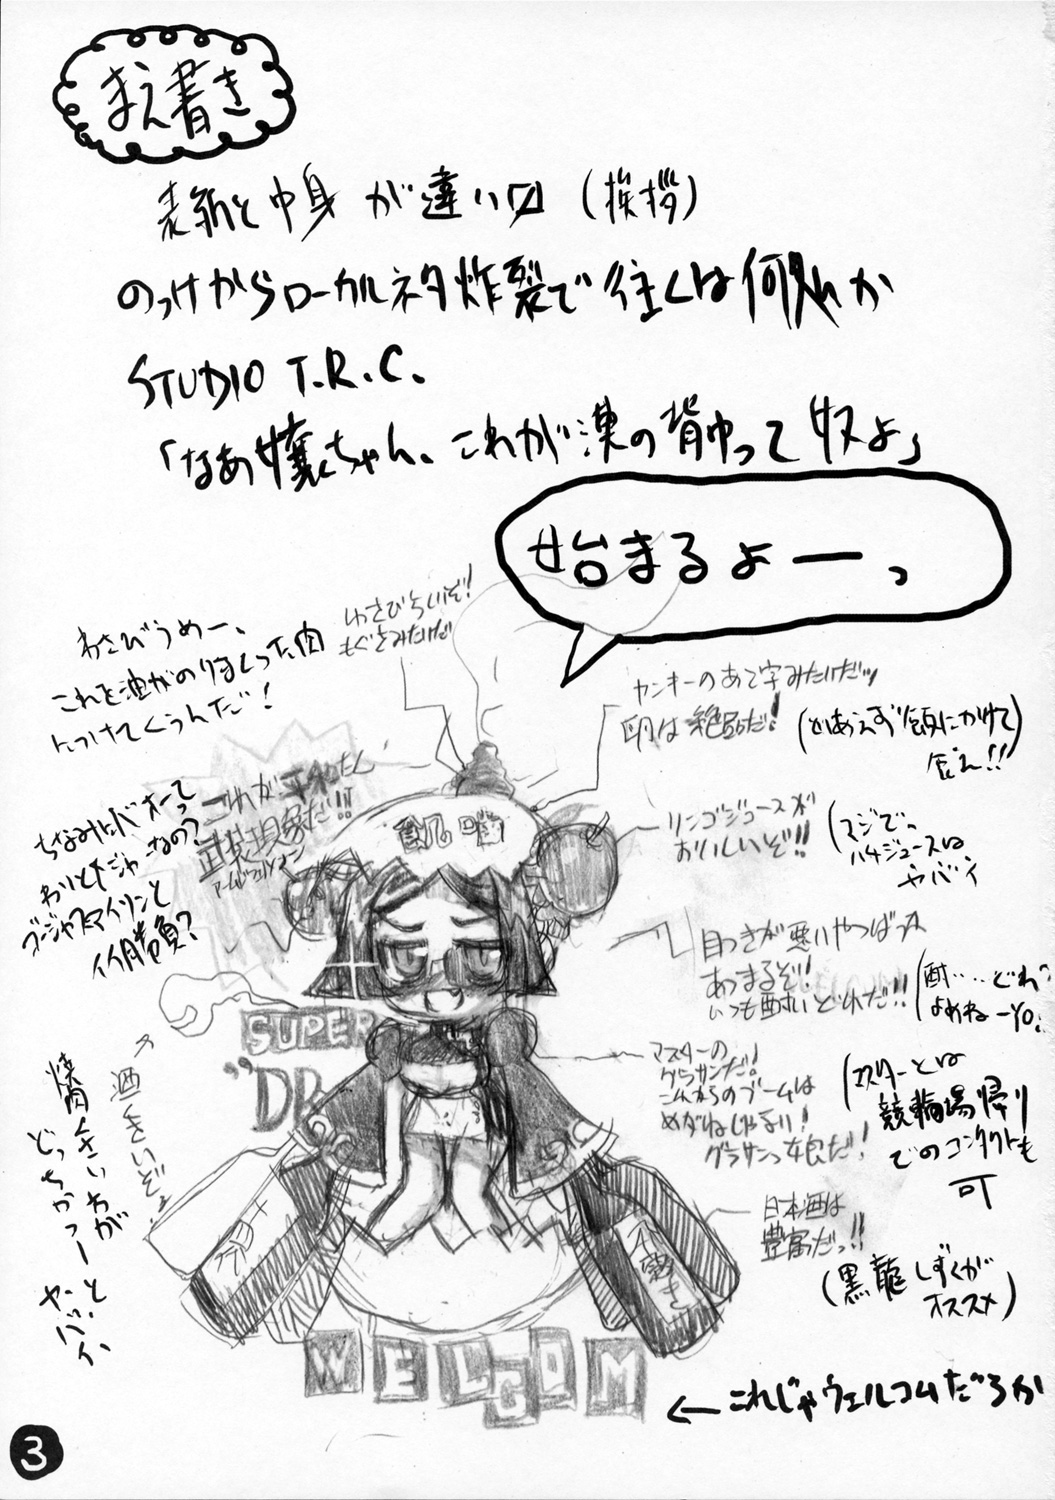 まえ書き
表紙と中身が違い〼(挨拶)
のっけからローカルネタ炸裂で往くは何処か
STUDIO T.R.C.
「なあ嬢ちゃん、これが漢の背中って奴よ」
始まるよーっ
わさびうめー、
これを油がのりまくった肉
につけてくうんだ!
わさびちいせ!
もぐさみたいだ
ヤンキーのあて字みたいだッ
卵は絶品だ!
(とりあえず顔にかけて
ちなみにバオーって
わりとメジャーなの?
ボージャックスマイリンと
イイ勝負?
これが
武装現象だ!!!
アームドフェノメノン
リンゴジュースが
おいしいぞ!!
(マジでっ
ハチジュースは
ヤバイ
目つきが悪いやつばっか
あつまるぞ!
いつも酔いどれだ!!
(酎……どれ?
よめねーYO!
SUPER
"DR
マスターの
グラサンだ!
これからのブームは
めがねじゃない!
グラサンっ娘だ!
(マスターとは
競輪場帰り
でのコンタクトも
可
↑酒くさいぞ!
焼肉くさいわが
どっちかっつーと
ヤバイ
日本酒は
豊富だっ!!
(黒龍しずくが
オススメ)
WELCOM
←これじゃウェルコムだろが
3